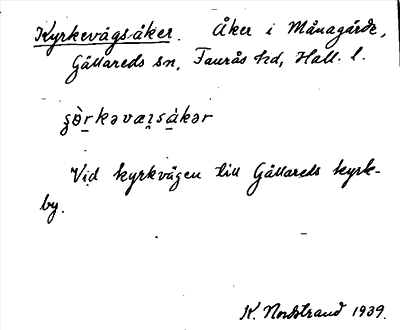 Kyrkevägsåker. Åker i Månagärde,
Gällareds sn, Faurås hd, Hall. l.
ʂòrkəvæɪsàkər
Vid kyrkvägen till Gällareds kyrk-
by.
K. Nordstrand 1939.